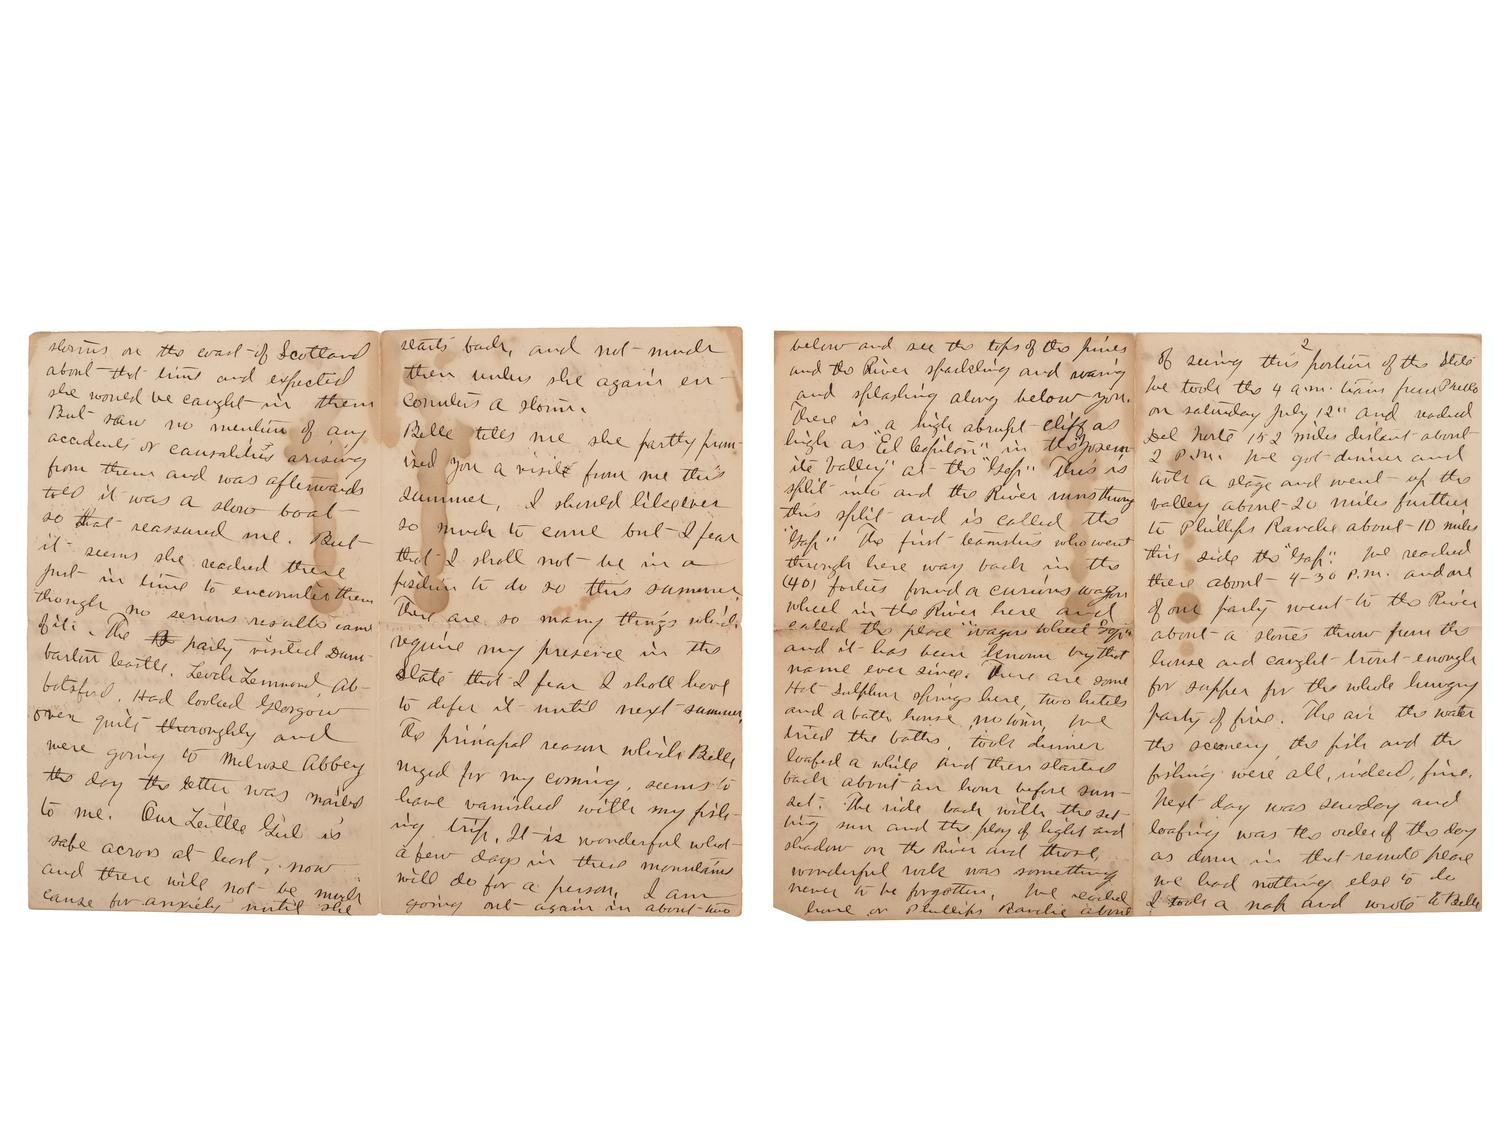 storms on the coast of Scotland
about that time and expected
she would be caught in them
But saw no mention of any
accidents or causalities arising
from them and was afterwards
told it was a slow boat
so that reassured me. But
it seems she reached there
just in time to encounter them
though no serious results came
of it. The party visited Dum-
barton Castle, Loch Lomond, Ab-
botsford, Had looked Glasgow
over quite thoroughly and
were going to Melrose Abbey
the day the letter was mailed
to me. Our Little Girl is
safe across at least, now
and there will not be much
cause for anxiety until she
starts back, and not much
then unless she again en-
counters a storm.
Belle tells me she partly prom-
ised you a visit from me this
summer, I should like ever
so much to come but I fear
that I shall not be in a
position to do so this summer.
There are so many things which
require my presence in the
State that I fear I shall have
to defer it until next summer,
The principal reason which Belle
urged for my coming, seems to
have vanished with my fish-
ing trip. It is wonderful what
a few days in these mountains
will do for a person. I am
going out again in about two
below and see the tops of the pines
and the River sparkling and
and splashing along below you.
There is a high abrupt cliff as
high as "El Capitan" in the "Yosem
ite Valley" at the "Gap". This is
split into and the River runs through
this split and is called the
"Gap". The first teamsters who went
through here way back in the
(40) forties found a curious wagon
wheel in the River here and
called the place "wagon wheel Gap"
and it has been known by that
name ever since. There are some
Hot Sulphur springs here, two hotels
and a bath house, no town, We
tried the baths, took dinner
loafed a while and then started
back about an hour before sun-
set. The ride back with the set-
ting sun and the play of light and
shadow on the River and those
wonderful rocks was something
never to be forgotten, We reached
home or Phillips Ranche about
2
of seeing this portion of the State
We took the 4 a.m. train from Pueblo
on saturday July 12" and reached
Del Norte 152 miles distant about
2 P.M. We got dinner and
took a stage and went up the
valley about 20 miles further
to Phillips Ranche about 10 miles
this side the "Gap". We reached
there about 4-30 P.M. and one
of our party went to the River
about a stones throw from the
house and caught trout enough
for supper for the whole hungry
party of five. The air the water
the scenery the fish and the
fishing were all, indeed, fine.
Next day was sunday and
loafing was the order of the day
as down in that remote place
we had nothing else to do
I took a nap and wrote to Belle